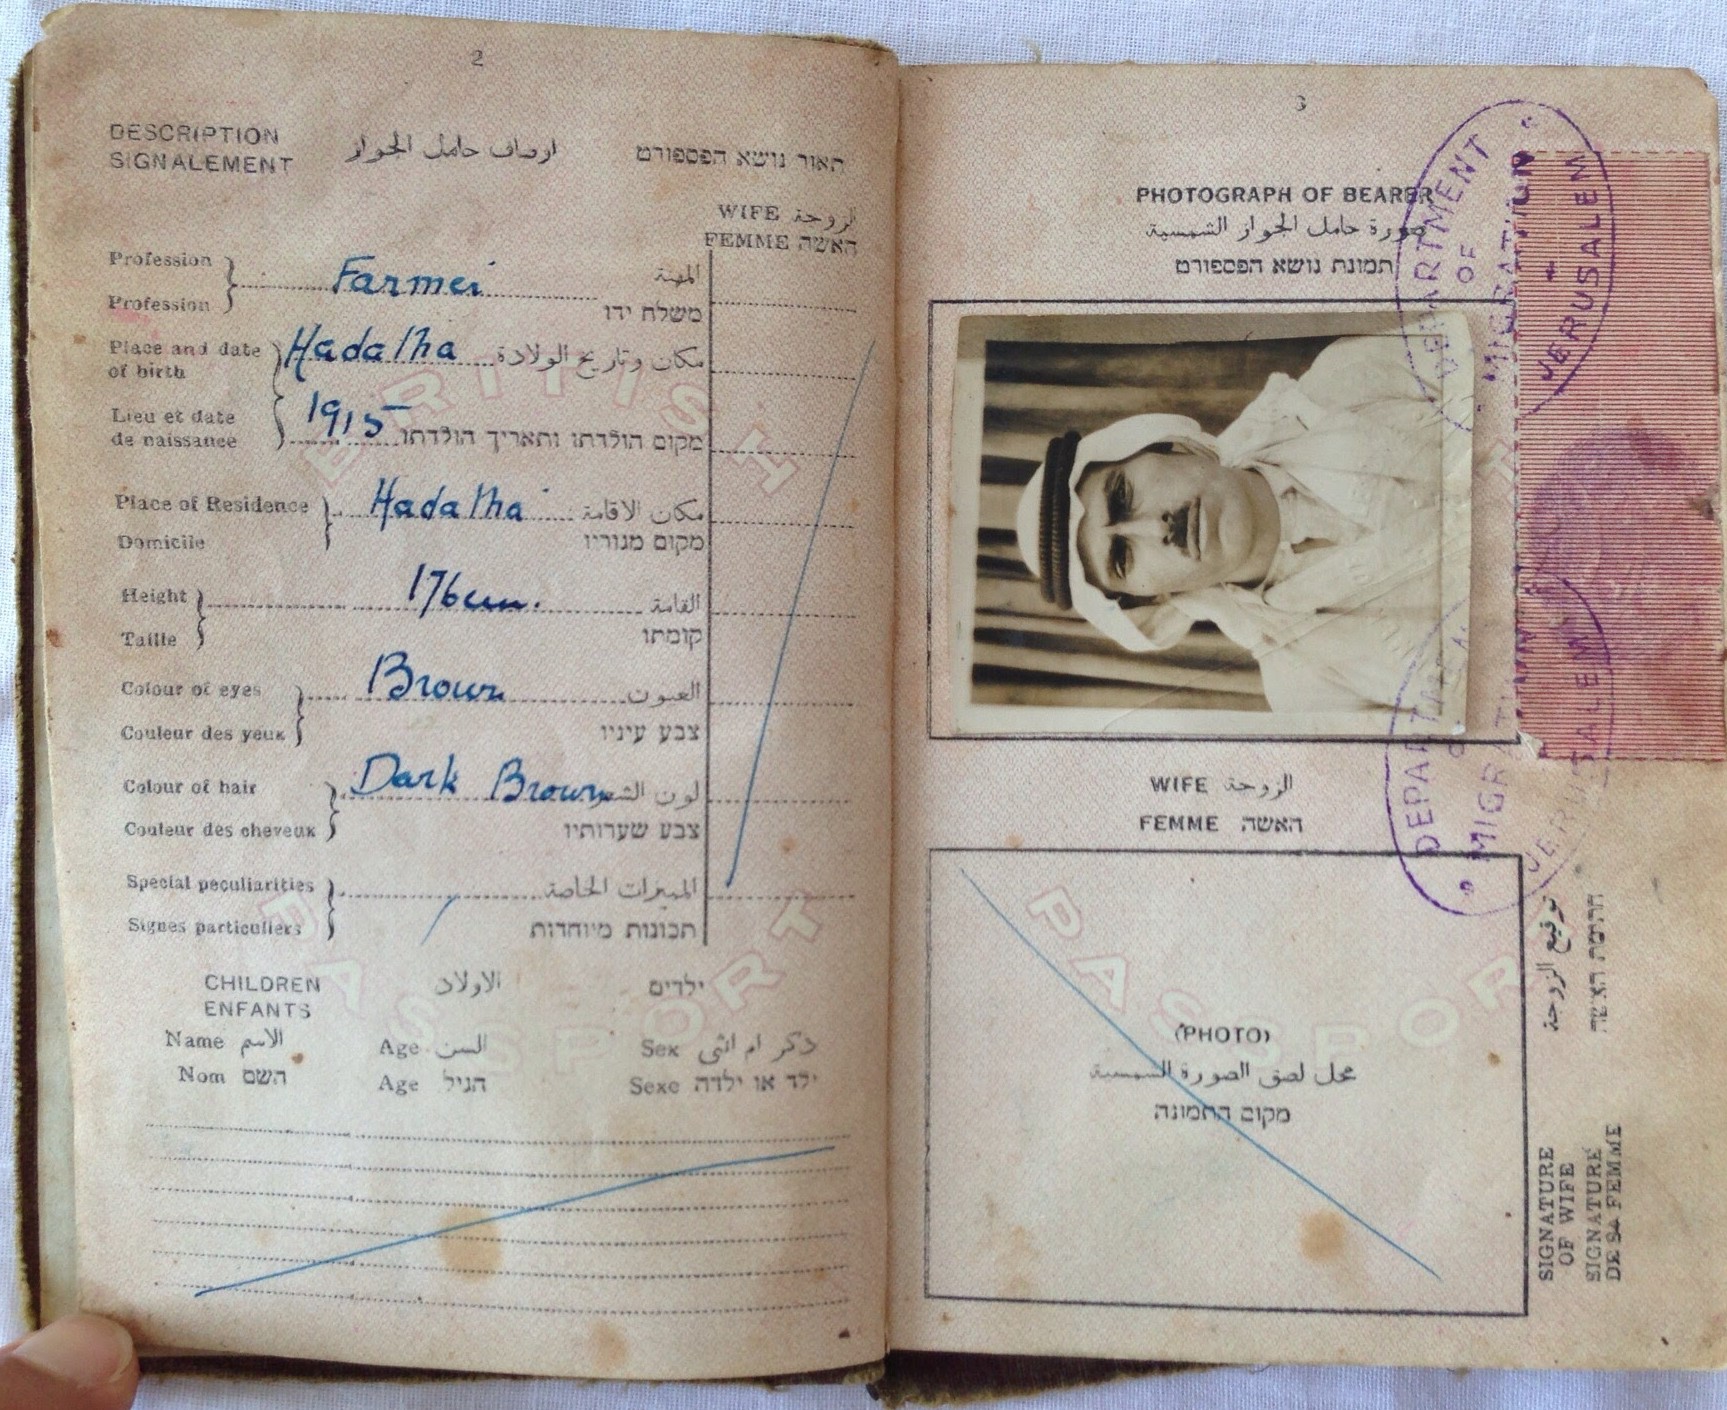 2
DESCRIPTION
SIGNALEMENT
اوصاف حامل الجواز
תאור נושא הפספורט
WIFE الزوجة
FEMME האשה
Profession
Profession
Farmer
المهنة
משלח ידו
Place and date
of birth
Hadatha
مكان وتاريخ الولادة
Lieu et date
de naissance
1915
מקום הולדתו ותאריך הולדתו
Place of Residence
Hadatha
مكان الاقامة
Domicile
מקום מגוריו
Height
176 cm.
القامة
Taille
קומתו
Colour of eyes
Brown
العيون
Couleur des yeux
צבע עיניו
Colour of hair
Dark Brown
لون الشعر
Couleur des cheveux
צבע שערותיו
Special peculiarities
المميزات الخاصة
Signes particuliers
תכונות מיוחדות
CHILDREN
ENFANTS
الاولاد
ילדים
Name الاسم Age السن Sex ذكر ام انثى
Nom השם Age הגיל Sexe ילד או ילדה
BRITISH
PASSPORT
3
PHOTOGRAPH OF BEARER
صورة حامل الجواز الشمسية
תמונת נושא הפספורט
DEPARTMENT
OF
MIGRATION
JERUSALEM
WIFE الزوجة
FEMME האשה
DEPARTMENT
OF
MIGRATION
JERUSALEM
(PHOTO)
محل لصق الصورة الشمسية
מקום התמונה
PASSPORT
توقيع الزوجة
חתימת האשה
SIGNATURE
OF WIFE
SIGNATURE
DE SA FEMME